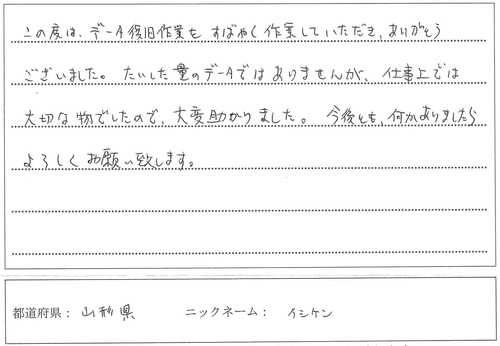 この度は、データ復旧作業をすばやく作業していただき、ありがとう
ございました。たいした量のデータではありませんが、仕事上では
大切な物でしたので、大変助かりました。今後とも、何かありましたら
よろしくお願い致します。
都道府県：山形県　ニックネーム：イシケン